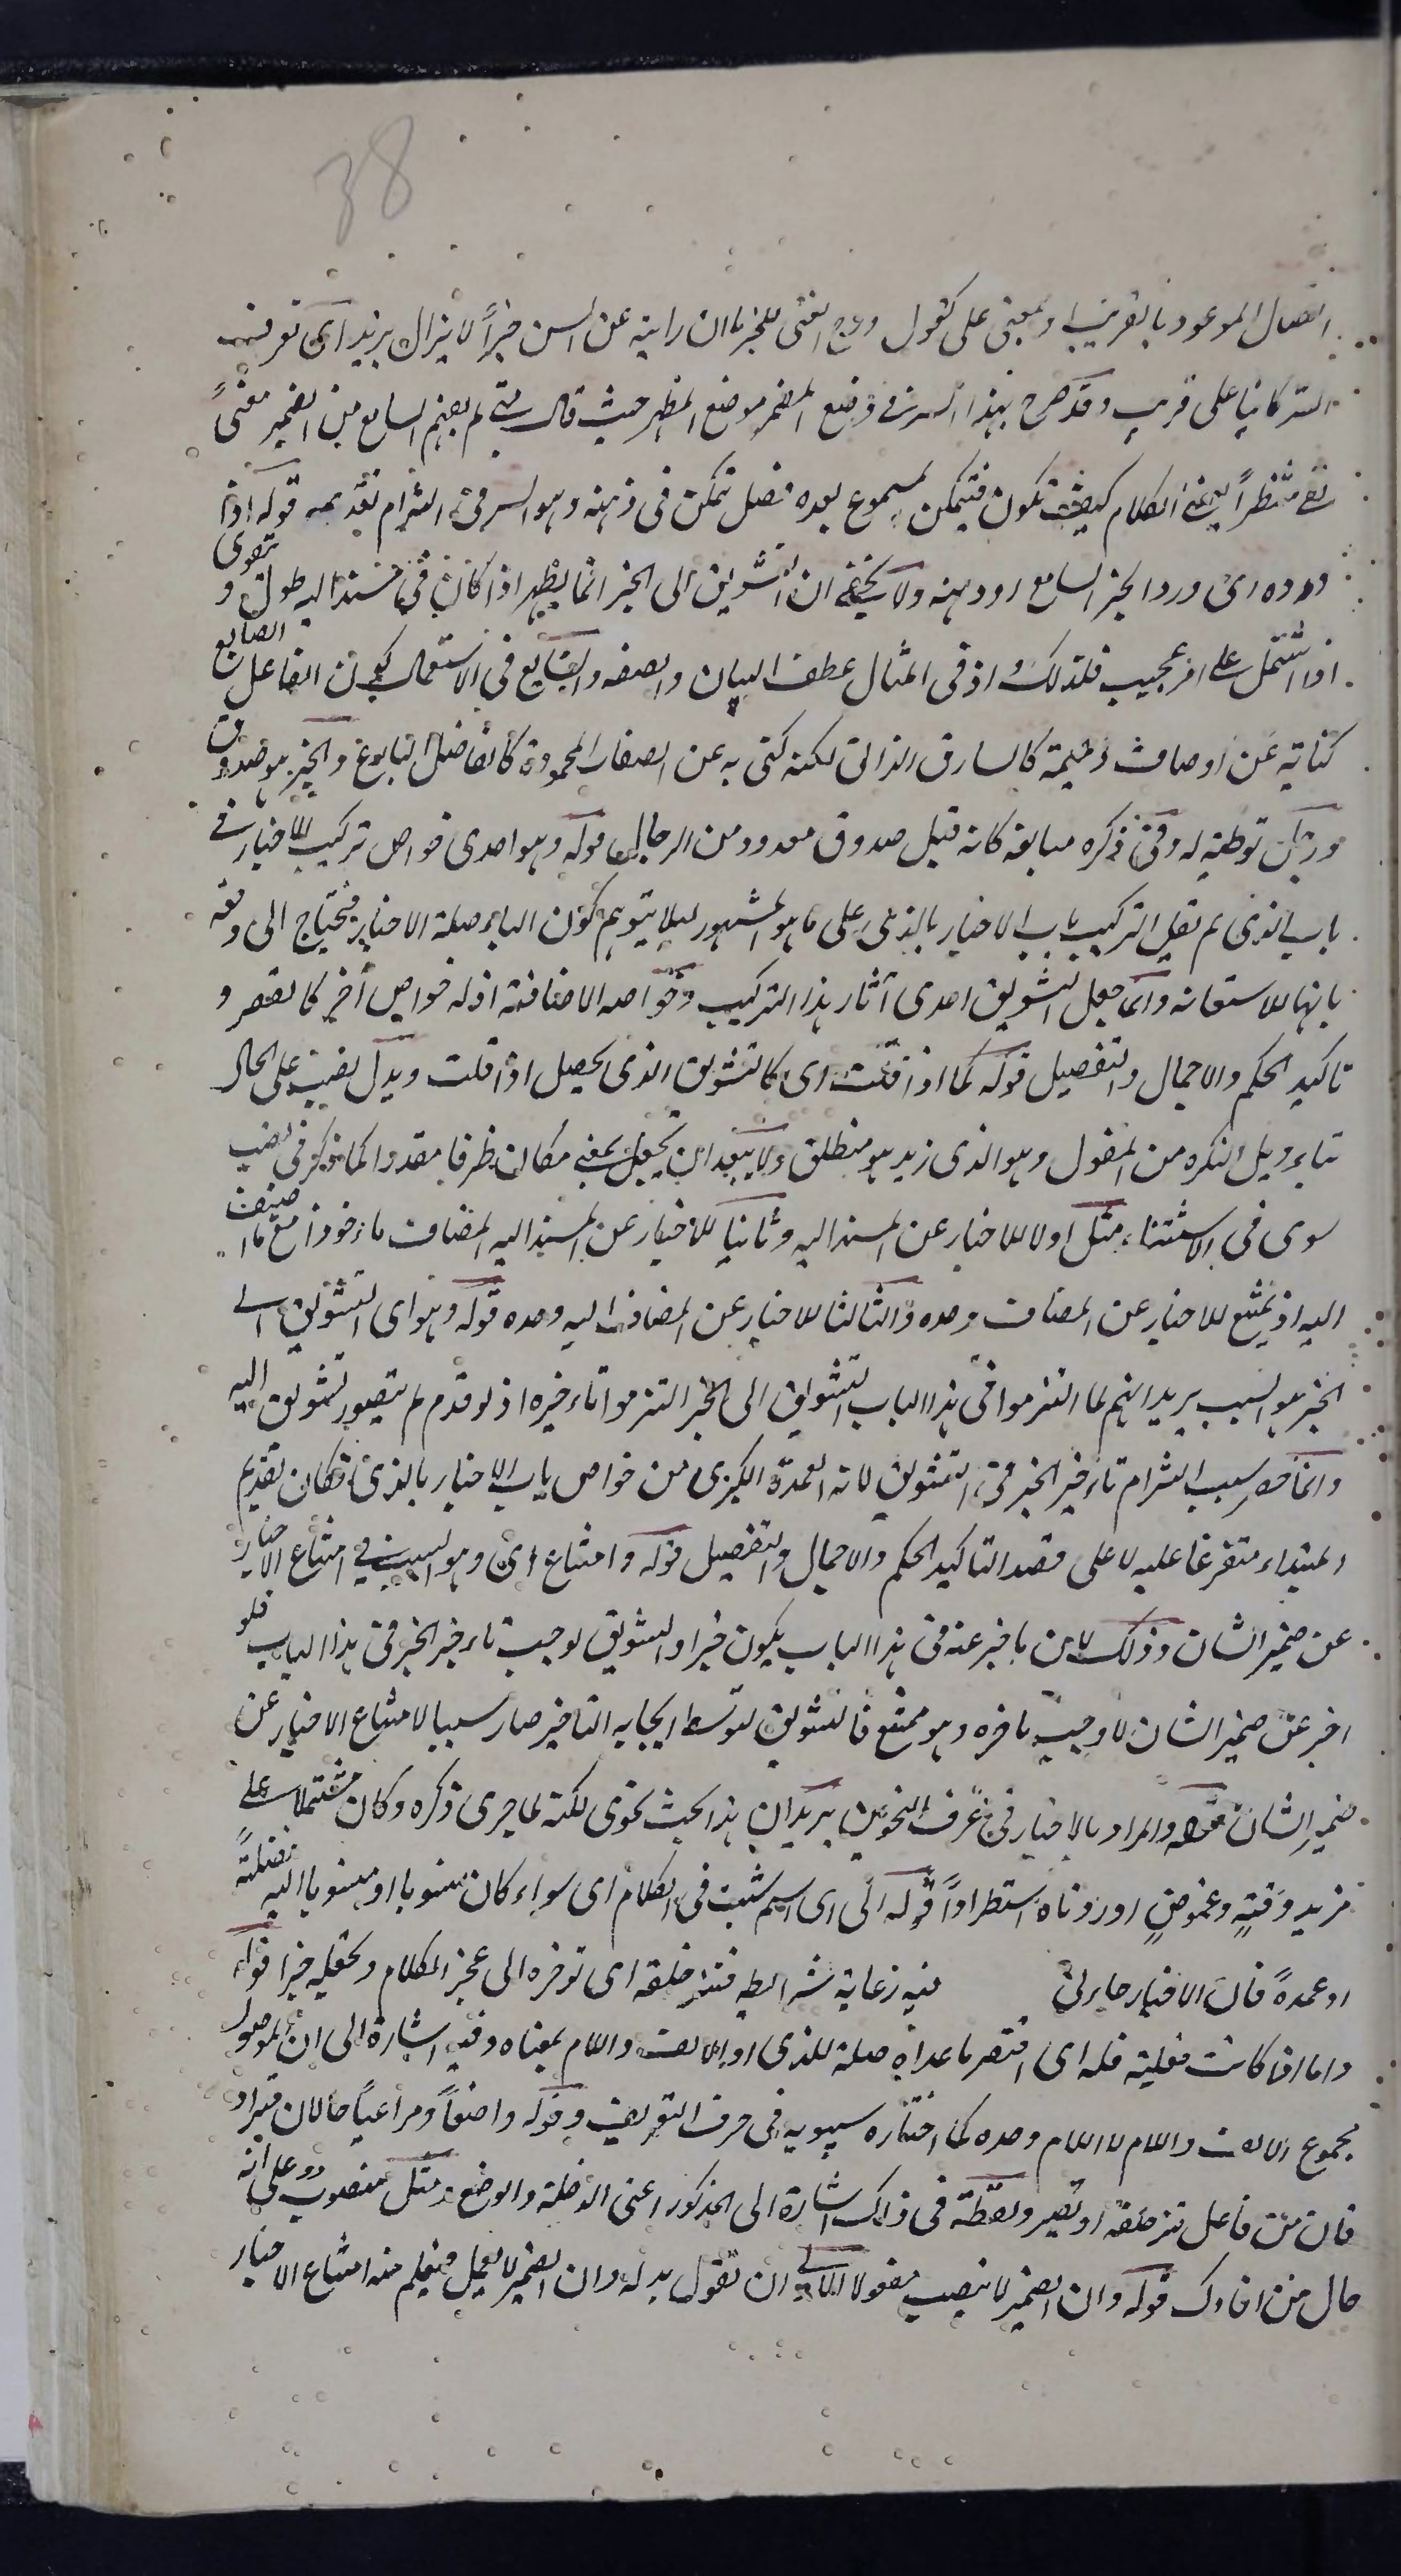 38
اتصال الموعود بالقريب او بمعنى على كقول ودج الفتى للخير ما ان رايته عن السن خيراً لا يزال يزيد اى توقيف
السكاكى على قريب وقد صرح بهذا السر فى وضع المضمر موضع المظهر حيث قال متى لم يفهم السامع من الضمير معنىً
بقى منتظراً لعقبى الكلام كيف تكون فيتمكن المسموع بعده فضل تمكن فى ذهنه وهو السر فى التزام تقديمه قوله اذا
اورده اى ورد الخبر السامع او ذهنه ولا يخفى ان التشويق الى الخبر انما يظهر اذا كان فى المسند اليه طول و
اذا اشتمل على امر عجيب فلذلك اذ فى المثال عطف البيان والصفه والشايع فى الاستعمال كون الفاعل الصانع
كناية عن اوصاف ذميمة كالسارق الزانى لكنه كنى به عن الصفات المحمودة كالفاضل البارع والخبر هو صدوق
توطئة له وفى ذكره مبالغه كانه قيل صدوق معدود من الرجال قوله وهو احدى خواص تركيب الاخبار فى
باب الذى لم يقل التركيب باب الاخبار بالذى على ما هو المشهور ليلا يتوهم كون الباء صلة الاخبار فيحتاج الى دفعه
بانها للاستعانه وانما جعل التشويق احدى آثار هذا التركيب وخواصه الاضافية اذ له خواص اُخر كالقصر و
تاكيد الحكم والاجمال والتفصيل قوله كما اذا قلت اى كالتشويق الذى يحصل اذا قلت وبدل نصب على الحال
بتاويل النكره من المفعول وهو الذى زيد هو منطلق ولا يبعد ان يجعل بمعنى مكان ظرفا مقدرا كما ذكر فى نصب
سوى فى الاستثناء مثل اولا للاخبار عن المسند اليه وثانيا للاخبار عن المسند اليه المضاف ماخوذا مع ما اضيف
اليه اذ يمتنع للاخبار عن المضاف وحده والثالثا للاخبار عن المضاف اليه وحده قوله وهو اى التشويق الى
الخبر هو السبب يريد انهم لما التزموا فى هذا الباب التشويق الى الخبر التزموا تاءخيره اذ لو قدم لم يتصور تشويق اليه
وانما حصر سبب التزام تاءخير الخبر فى التشويق لانه العمدة الكبرى من خواص باب الاخبار بالذى فكان تقديم
المبتداء متفرعا عليه لا على قصد التاكيد الحكم والاجمال والتفصيل قوله وامتناع اى وهو السبب فى امتناع الاخبار
عن ضمير الشان وذلك لان ما خبر عنه فى هذا الباب يكون خبرا والتشويق يوجب تاءخير الخبر فى هذا الباب فلو
اخبر عن ضمير الشان لاوجب تاخره وهو ممتنع فالتشويق بتوسط ايجابه التاخير صار سببا لامتناع الاخبار عن
ضمير الشان قوله والمراد بالاخبار فى عُرف النحويين يريد ان هذا بحث نحوى لكنه لما جرى ذكره وكان مشتملا على
مزيد دقةٍ وغموضٍ اوردناه استطراداً قوله الى اى اسم شئت فى الكلام اى سواء كان منسوبا او منسوبا اليه فضلةً
او عمدةً فان الاخبار جار فى فيه رعاية شرائطه فتزحلقه اى توخره الى عجز الكلام وتجعله خبرا قوله
واما اذا كانت فعلية فله اى اقتصر ما عداه صلة للذى او الالف واللام بمعناه وفيه اشارة الى ان الموصول
مجموع الالف واللام لا اللام وحده كما اختاره سيبويه فى حرف التعريف وقوله واضعاً ومراعياً حالان
فان من فاعل تزحلقه او تصير ولفظة فى ذاك اشارة الى المذكور اعنى الدخلة والوضع ومثل منصوب على انه
حال من ذاك قوله وان الضمير لا ينصب مفعولا الاولى ان تقول بدله وان الضمير لا يعمل فيعلم منه امتناع الاخبار